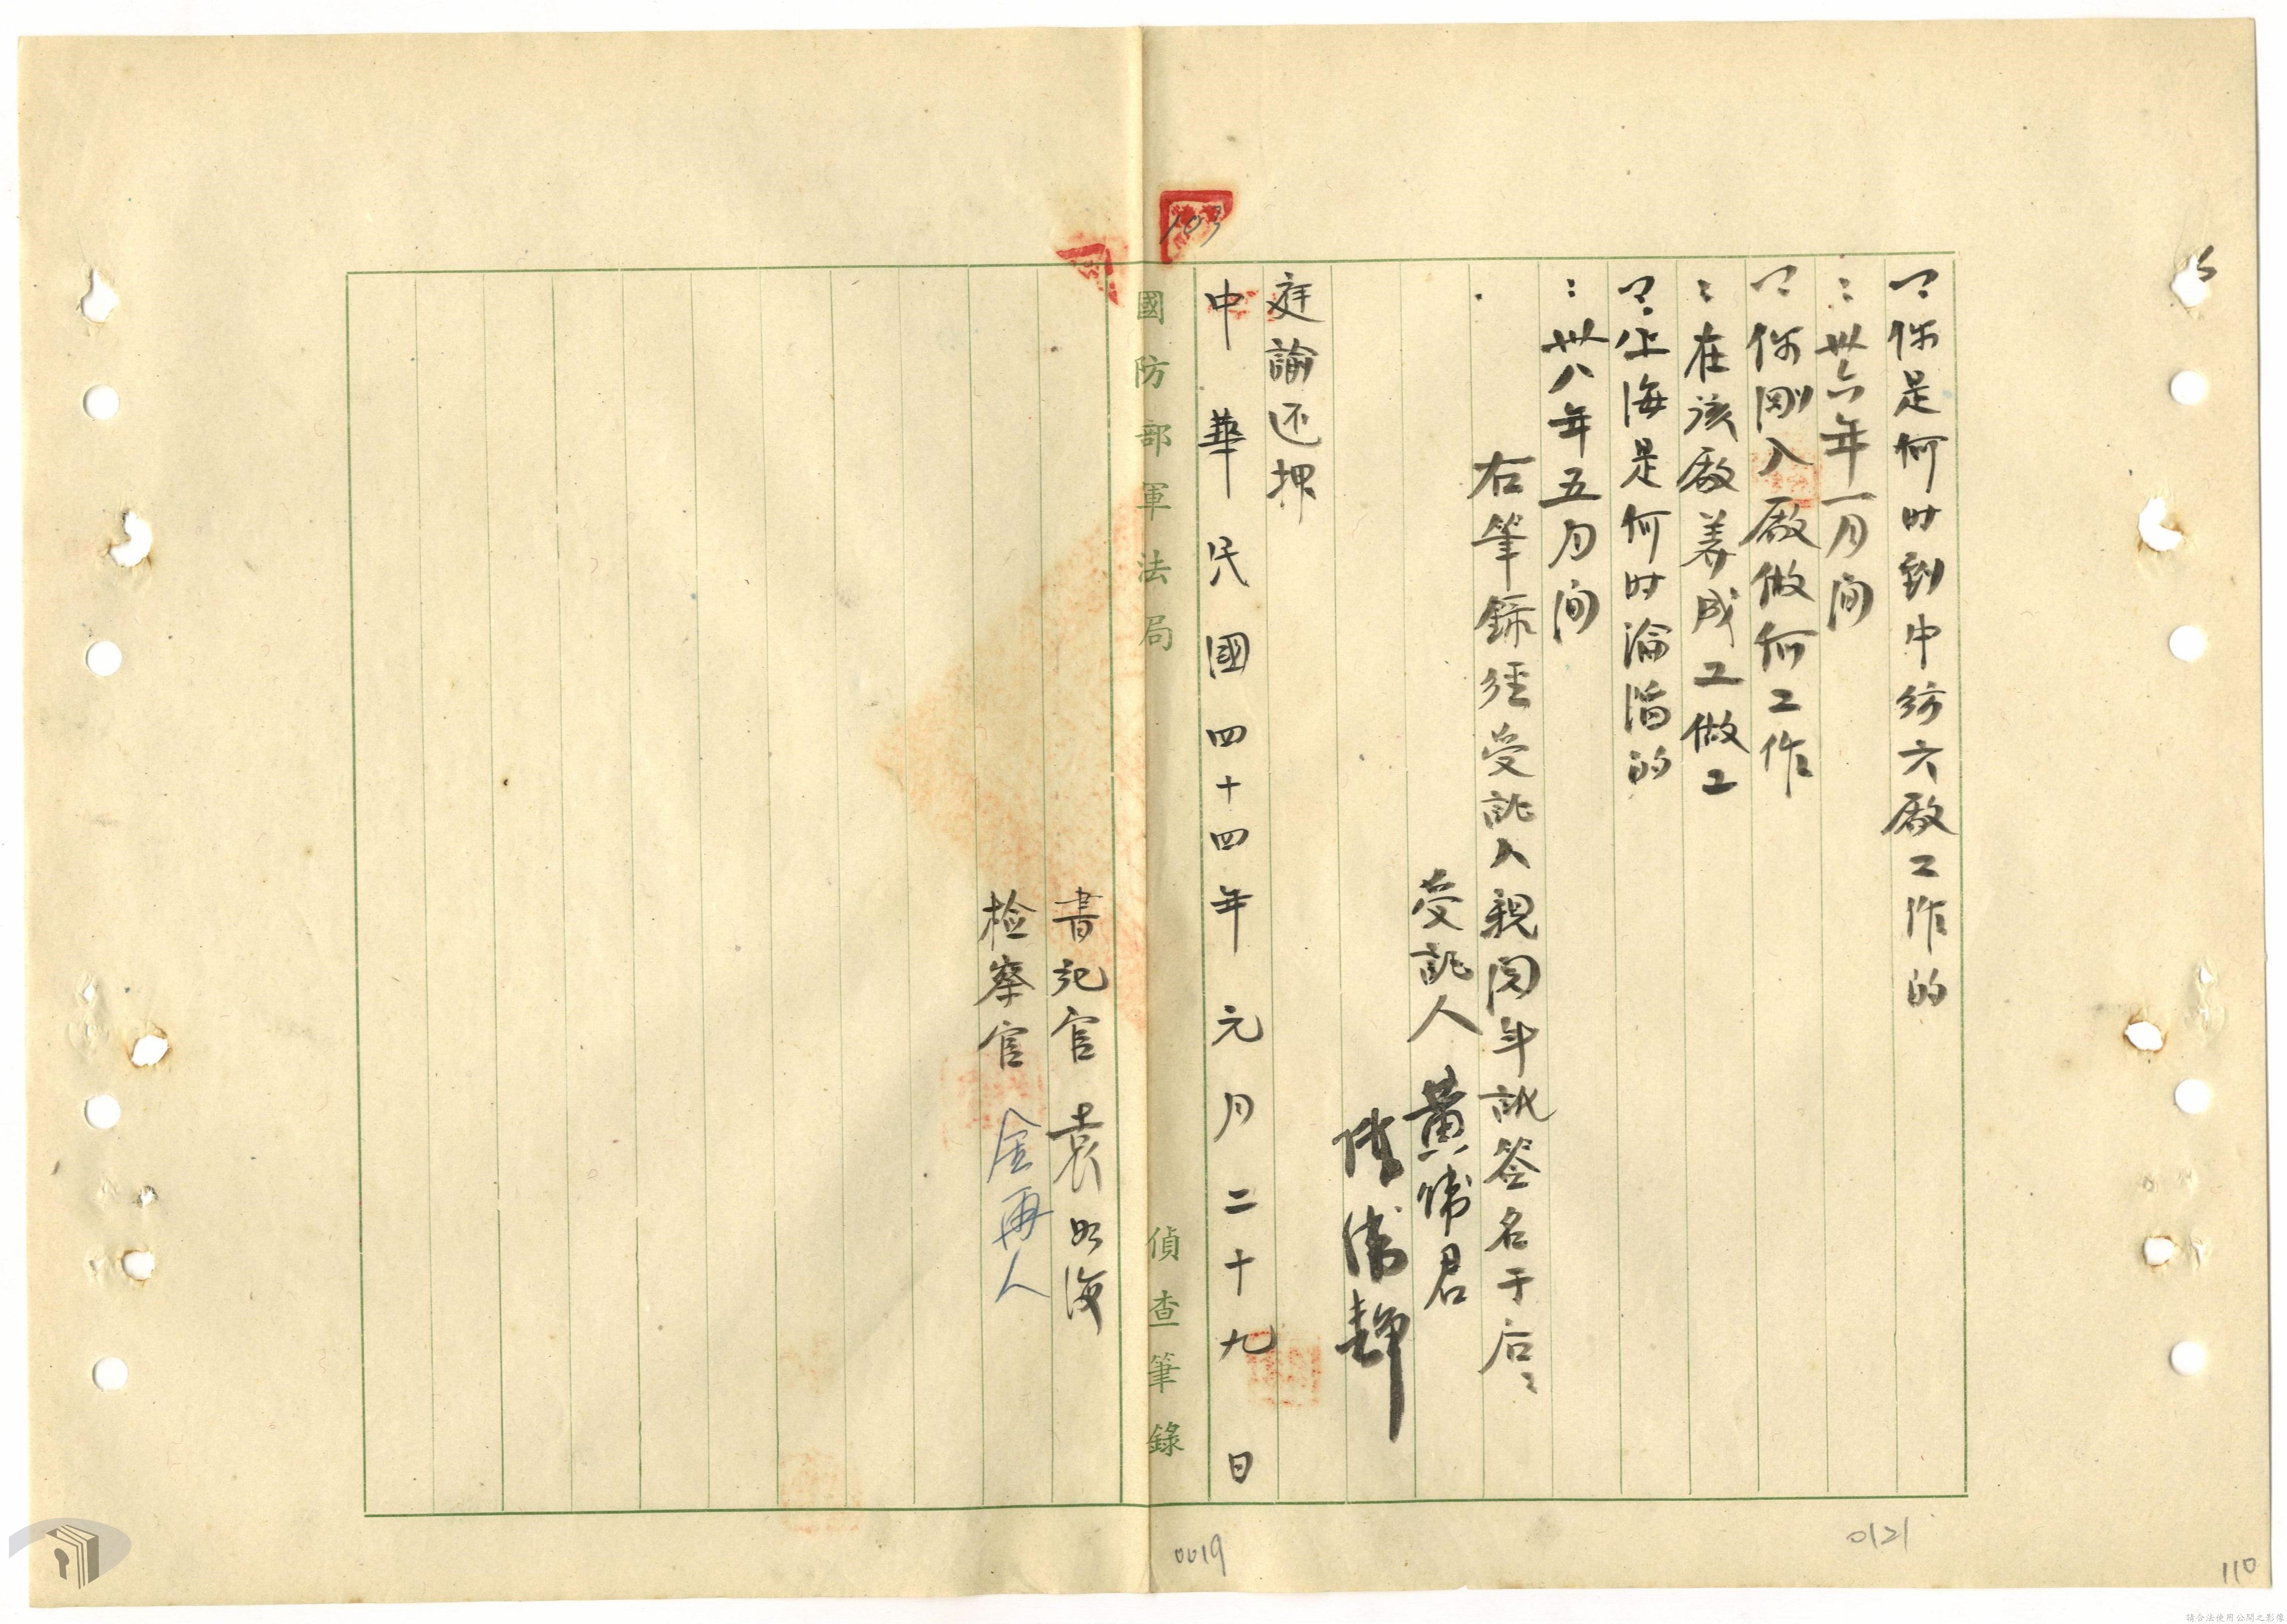 問：你是何时到中紡六廠工作的
：卅六年一月间
問：你剛入廠做何工作
：在该廠养成工做工
問：上海是何时淪陷的
：卅八年五月间
右筆錄經受訊人親閱無訛签名于后：
受訊人 黃佩君
庭諭还押
中華民國四十四年元月二十九日
國防部軍法局 偵查筆錄
書記官 袁如海
检察官 金再人
103
0019
0121
110
請合法使用公開之影像